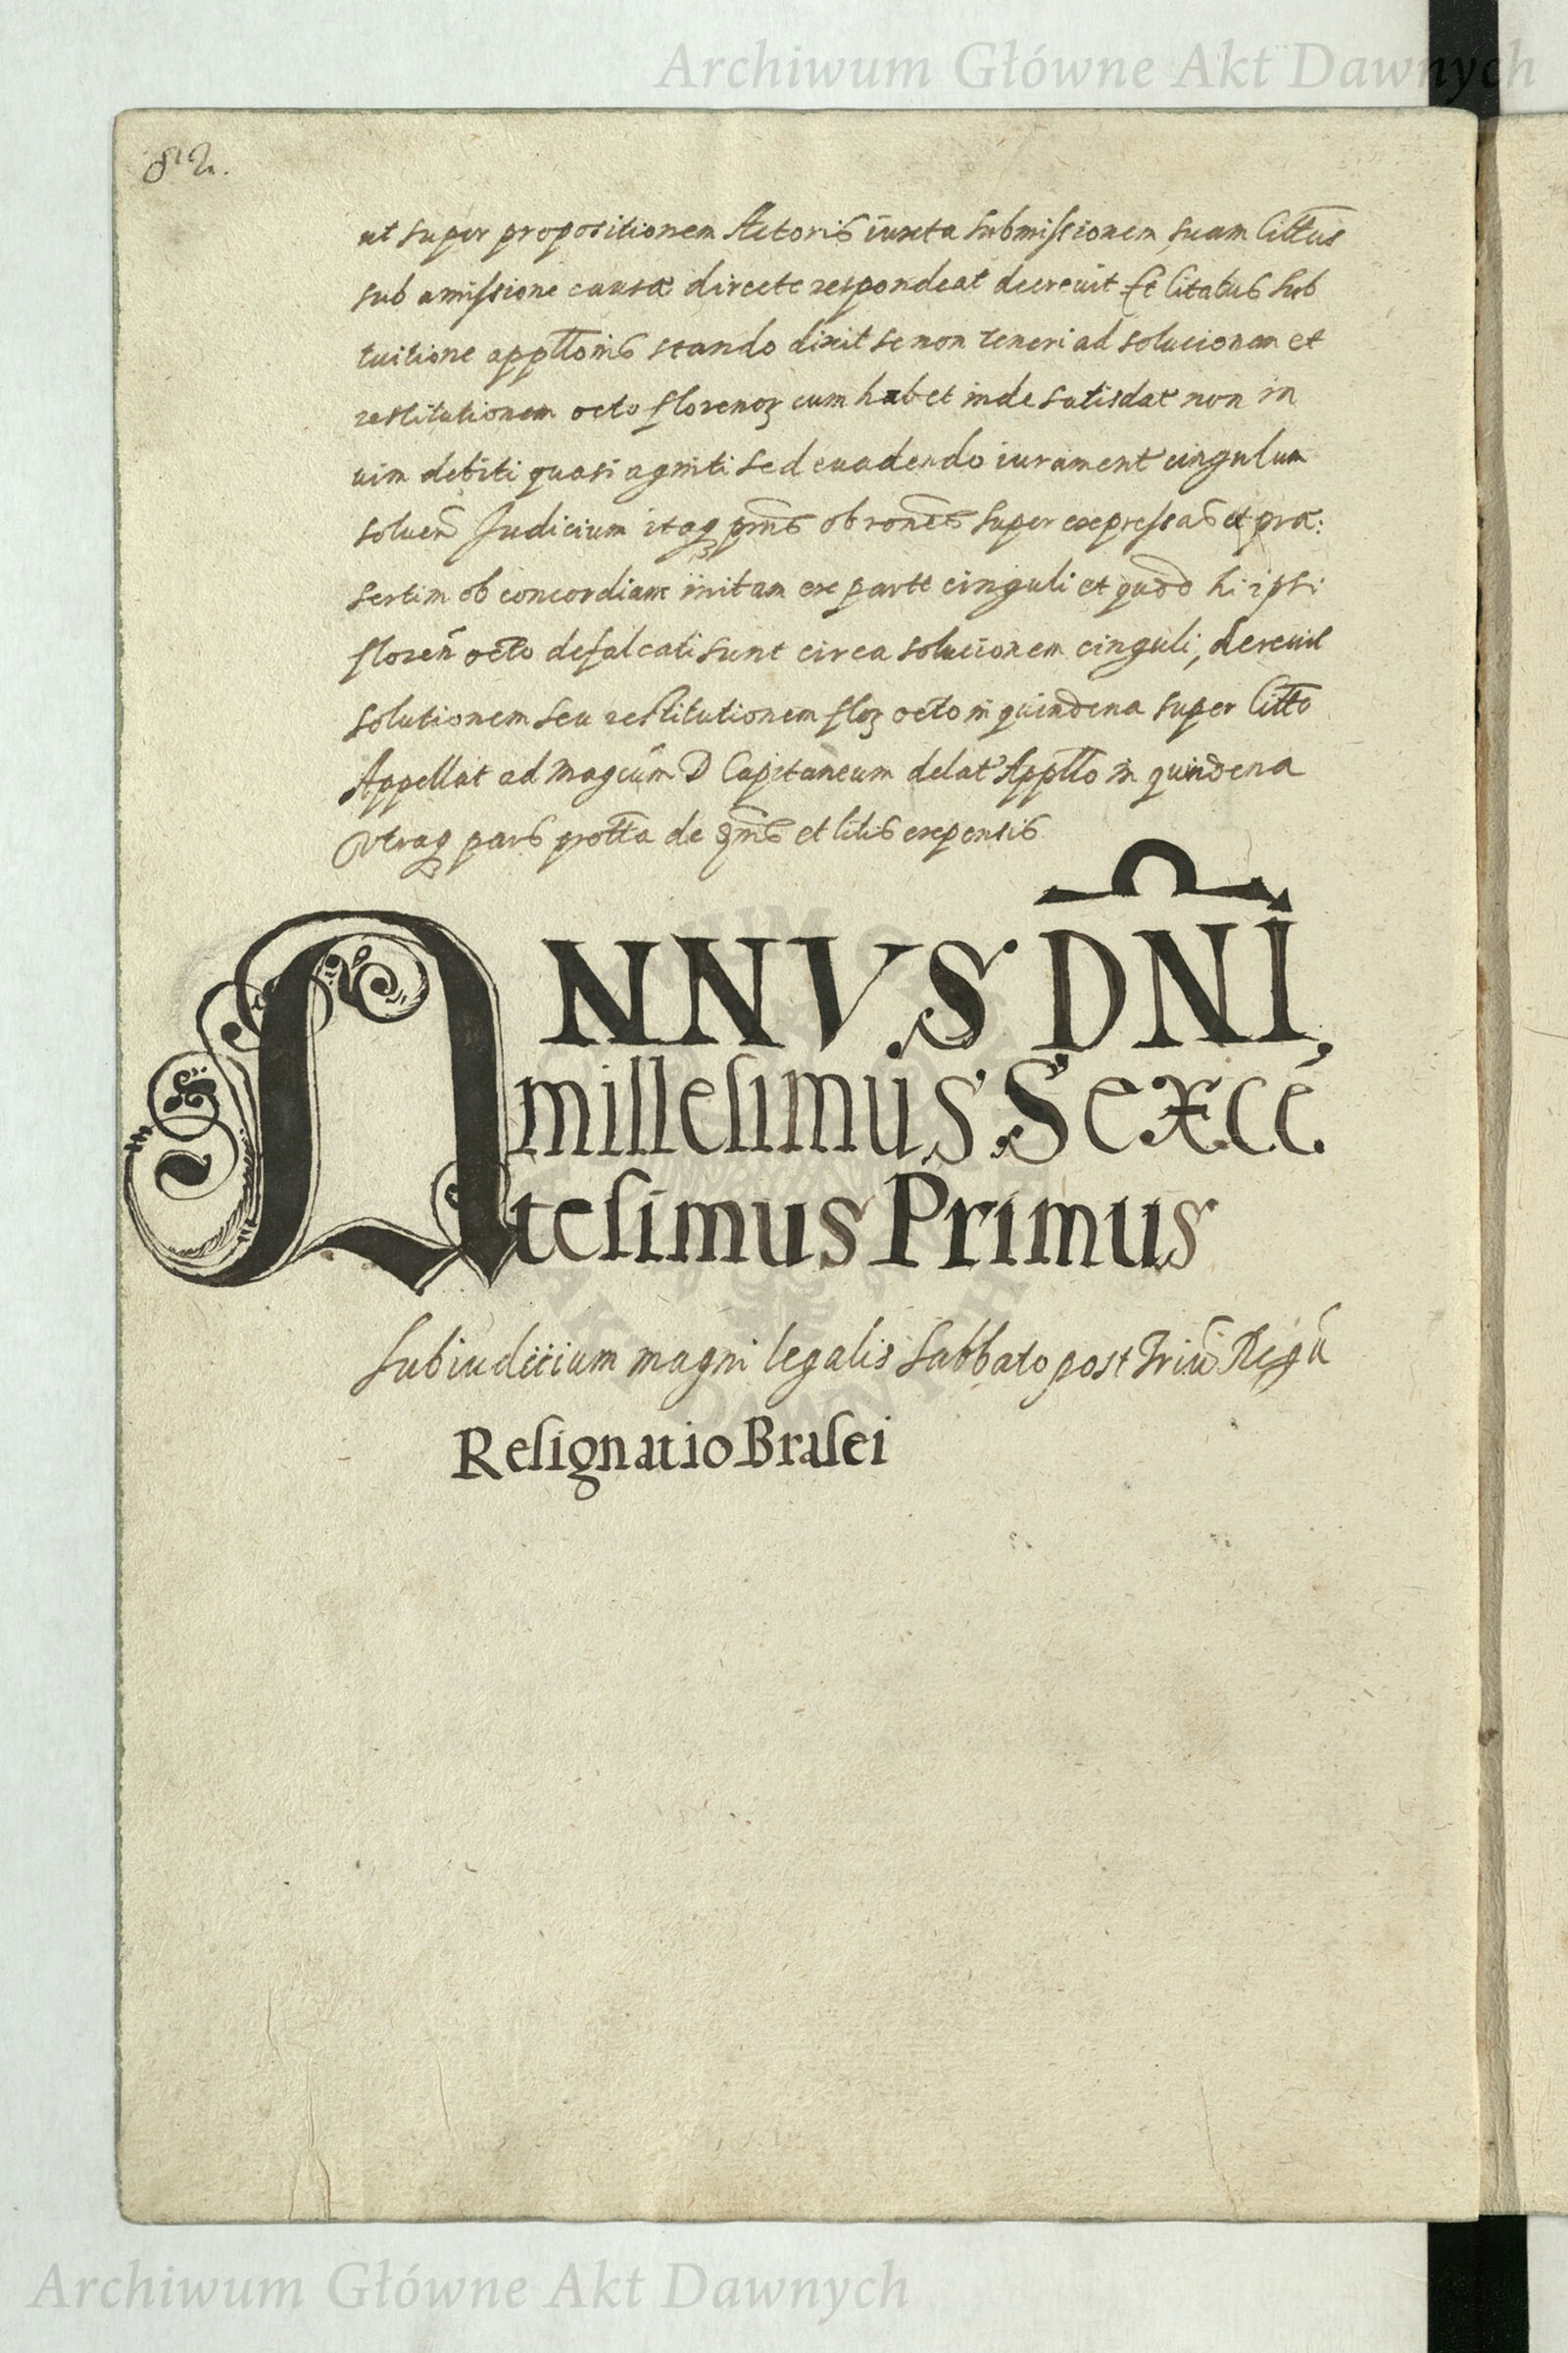 Archiwum Główne Akt Dawnych
82.
ut super propositionem Actoris iuxta submissionem suam Citt̄us
sub amissione causæ directe respondeat decrevit Et Citatus sub
tuitione appl̄lonis stando dixit se non teneri ad solucionem et
restitutionem octo florenoꝝ cum habet inde satisdat non in
vim debiti quasi agniti sed evadendo iurament cingulum
solven̄ Judicium itaqꝫ pm̄s ob rōnes super expressas et præ:
sertim ob concordiam initam ex parte cinguli et quod hi ipsi
floren̄ octo defalcati sunt circa solucionem cinguli, derevit
solutionem seu restitutionem floꝝ octo in quindena super Citt̄o
Appellat ad Magcum̄ D Capitaneum delat Appll̄o in quindena
Utraqꝫ pars prott̄a de ꝯm̄s et litis expensis
ANNVS DN̄I,
millesimus Sexcē
tesimus Primus
Sub iuditium magni legalis Sabbato post Triū Regū
Resignatio Brasei
Archiwum Główne Akt Dawnych